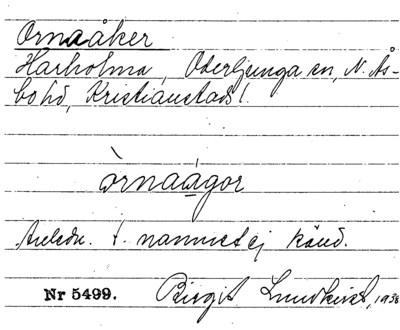 Ornaåker
Harholma, Oderljunga sn, N. Ås-
bo hd, Kristianstads l.
òrnaágor
Anledn. t. namnet ej känd.
Nr 5499. Birgit Lundkvist, 1938